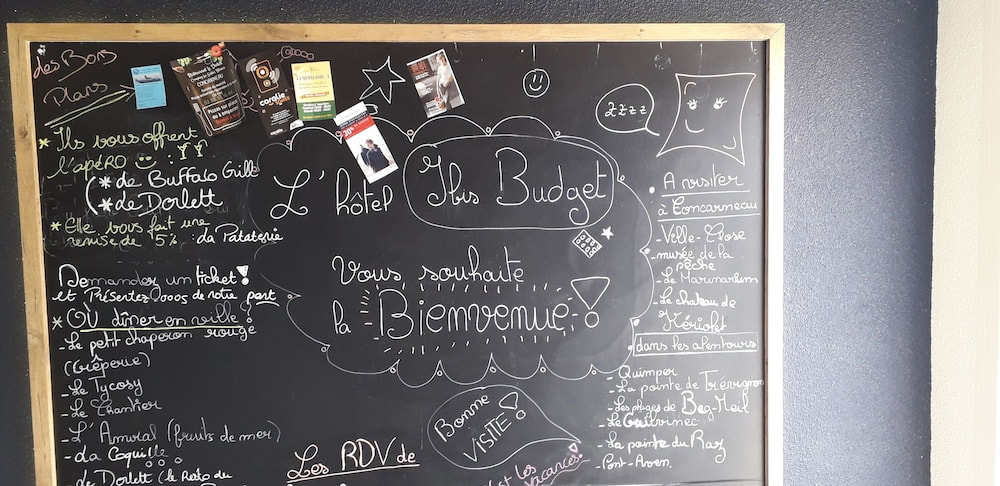 Les Bons
Plans
* Ils vous offrent
l'apéro :
(* de Buffalo Grill
(* de Dorlett
* Elle vous fait une
remise de 5% : La Pataterie
Demandez un ticket!
et Présentez vous de notre part
* OÙ dîner en ville?
- Le petit chaperon rouge
(Crêperie)
- Le Tycosy
- Le Chantier
- L'Amiral (fruits de mer)
- La Coquille
de Dorlett (le Resto du
L'hôtel Ibis Budget
Vous souhaite
la Bienvenue!
zzzz
Bonne
VISITE!
Les RDV de
c'est les
vacances!
A visiter
à Concarneau
- Ville-Close
- musée de la
pêche
- Le Marinarium
- Le chateau de
Kériolet
dans les alentours
- Quimper
- La pointe de Trévignon
- Les plages de Beg-Meil
- Le Guilvinec
- La pointe du Raz
- Pont-Aven
coralie